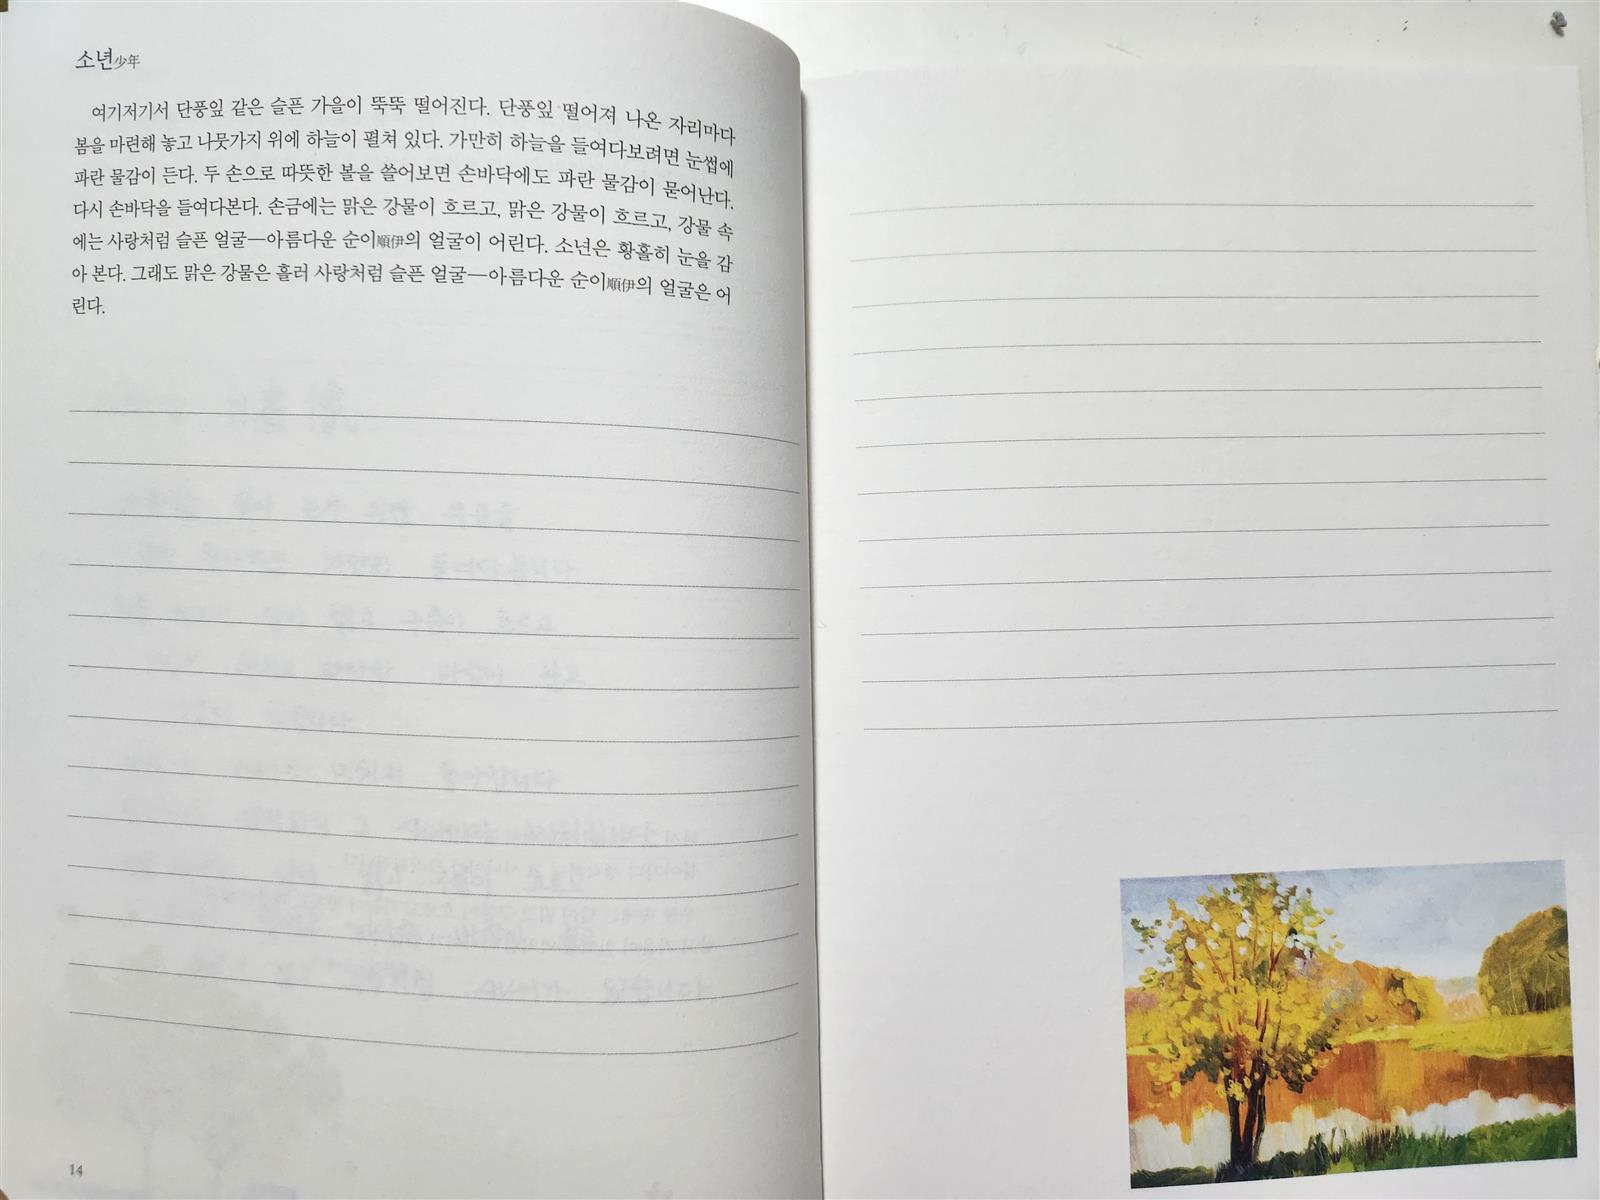 소년少年
여기저기서 단풍잎 같은 슬픈 가을이 뚝뚝 떨어진다. 단풍잎 떨어져 나온 자리마다
봄을 마련해 놓고 나뭇가지 위에 하늘이 펼쳐 있다. 가만히 하늘을 들여다보려면 눈썹에
파란 물감이 든다. 두 손으로 따뜻한 볼을 쓸어보면 손바닥에도 파란 물감이 묻어난다.
다시 손바닥을 들여다본다. 손금에는 맑은 강물이 흐르고, 맑은 강물이 흐르고, 강물 속
에는 사랑처럼 슬픈 얼굴—아름다운 순이順伊의 얼굴이 어린다. 소년은 황홀히 눈을 감
아 본다. 그래도 맑은 강물은 흘러 사랑처럼 슬픈 얼굴—아름다운 순이順伊의 얼굴은 어
린다.
14